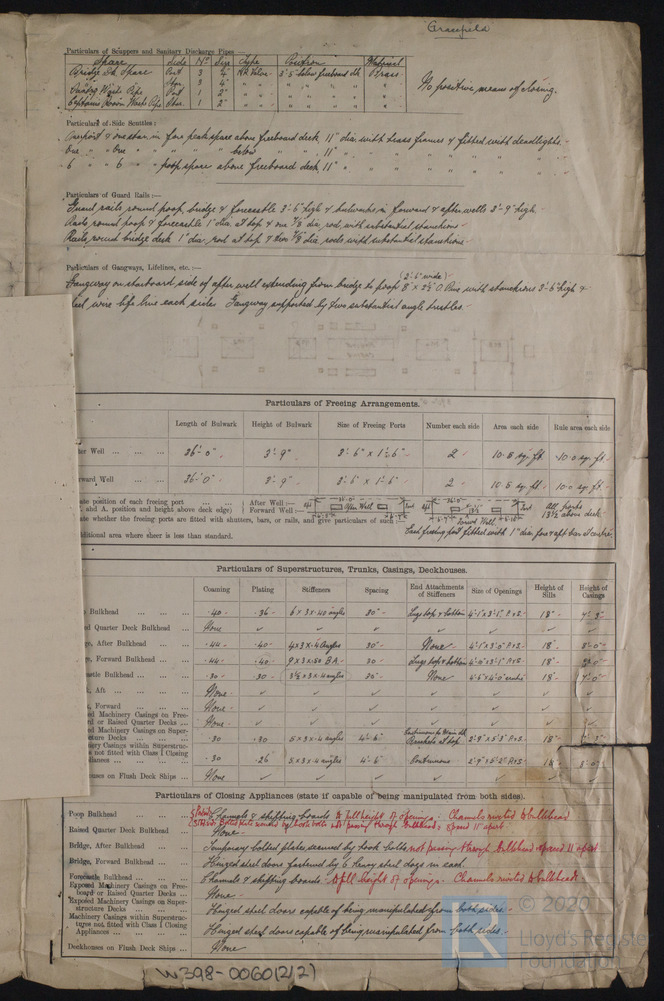 Particulars of Scuppers and Sanitary Discharge Pipes —
Space Side No Size Type Position Material
Bridge Dk Space Port 3 4" N.R. Valve 3'·5" below freeboard dk Brass
" Star. 3 4" " " " " "
Waste Pipe Port 1 2" " " " " "
Captains Room Waste Pipe Star. 1 2" " " " " "
No positive means of closing.
Particulars of Side Scuttles :—
One port & one star. in fore peak space above freeboard deck 11" dia. with brass frames & fitted with deadlights.
One " One " " " " below " " 11" " " " " " " "
6 " 6 " " poop space above freeboard deck 11" " " " " " " "
Particulars of Guard Rails :—
Guard rails round poop, bridge & forecastle 3'-6" high & bulwarks in forward & after wells 3'-9" high.
Rails round poop & forecastle 1" dia at top & one 7/8 dia, rod with substantial stanchions
Rails round bridge deck 1" dia, rod at top & two 7/8 dia rods with substantial stanchions
Particulars of Gangways, Lifelines, etc. :—
(2'-6" wide)
Gangway on starboard side of after well extending from bridge to poop 8" x 2½" O. Pine with stanchions 3'-6" high &
steel wire life line each side Gangway supported by two substantial angle trestles.
Particulars of Freeing Arrangements.
Length of Bulwark Height of Bulwark Size of Freeing Ports Number each side Area each side Rule area each side
ter Well 36'-0" 3'-9" 3'-6" x 1'-6" 2 10·5 sq. ft. 10·0 sq. ft.
rward Well 36'-0" 3'-9" 3'-6" x 1'-6" 2 10·5 sq. ft. 10·0 sq. ft.
ate position of each freeing port After Well :— After Well
. and A. position and height above deck edge) Forward Well :— Forward Well All ports 13½ above deck
ate whether the freeing ports are fitted with shutters, bars, or rails, and give particulars of such :—
Each freeing port fitted with 1" dia fore & aft bar at centre
dditional area where sheer is less than standard.
Particulars of Superstructures, Trunks, Casings, Deckhouses.
Coaming Plating Stiffeners Spacing End Attachments of Stiffeners Size of Openings Height of Sills Height of Casings
Bulkhead ·40 ·36 6 x 3 x ·40 angles 30" Lugs top & bottom 4'-1" x 3'-1" P & S. 18" 7'-3"
ed Quarter Deck Bulkhead None
ge, After Bulkhead ·44 ·40 4 x 3 x ·40 angles 30" None 4'-1" x 3'-0" P & S 18"
ge, Forward Bulkhead ·44 ·40 9 x 3 x ·50 B.A. 30 Lugs top & bottom 4'-0" x 3'-1" P & S 18"
astle Bulkhead ·30 ·30 3½ x 3 x ·40 angles None 18" 7'-0"
k, Aft None
k, Forward None
ed Machinery Casings on Free-
rd or Raised Quarter Decks None
ed Machinery Casings on Super-
cture Decks ·30 ·30 5 x 3 x ·40 angles 4'-6" Continuous to Main dk Brackets at top 2'-9" x 5'-3" P & S 18"
ery Casings within Superstruc-
not fitted with Class I Closing
liances ·30 ·26 5 x 3 x ·40 angles 4'-6" Continuous 2'-9" x 5'-2" P & S 18" 8'-0"
ouses on Flush Deck Ships None
Particulars of Closing Appliances (state if capable of being manipulated from both sides).
Poop Bulkhead Channels & shifting boards to full height of openings. Channels riveted to bulkhead
bolted plate secured by hook bolts not passing through bulkheads spaced 11" apart
Raised Quarter Deck Bulkhead None
Bridge, After Bulkhead Temporary bolted plates, secured by hook bolts not passing through bulkhead spaced 11" apart
Bridge, Forward Bulkhead Hinged steel doors fastened by 6 heavy steel dogs in each
Forecastle Bulkhead Channels & shifting boards to full height of openings. Channels riveted to bulkheads
Exposed Machinery Casings on Free-
board or Raised Quarter Decks None
Exposed Machinery Casings on Super-
structure Decks Hinged steel doors capable of being manipulated from both sides
Machinery Casings within Superstruc-
tures not fitted with Class I Closing
Appliances Hinged steel doors capable of being manipulated from both sides.
Deckhouses on Flush Deck Ships None
W398-0060(2/2)
© 2020
Lloyd's Register
Foundation